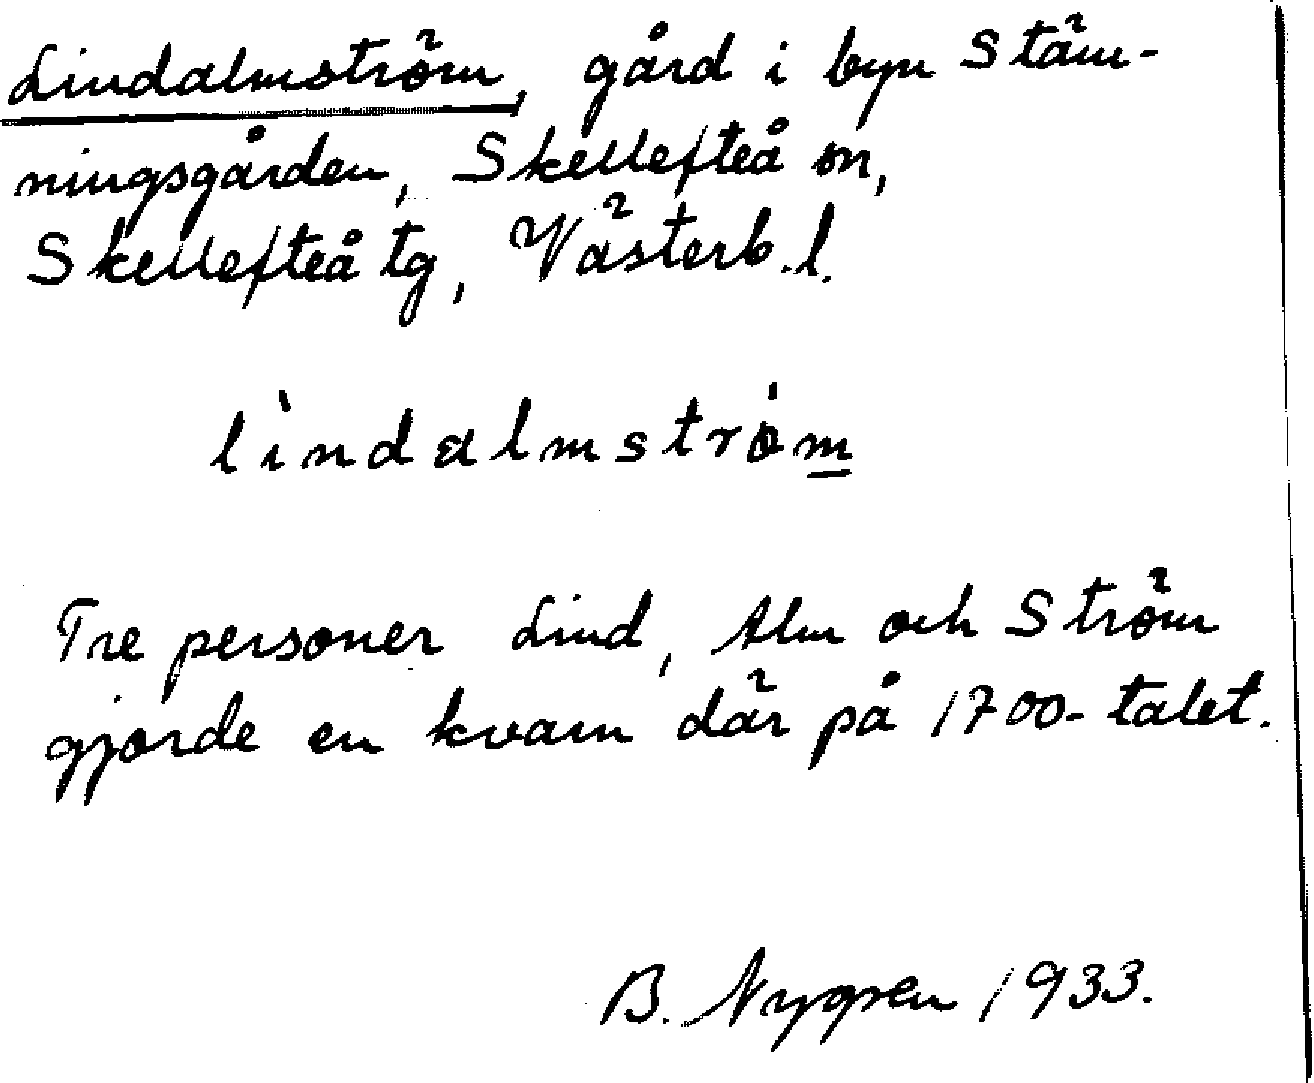 Lindalmström, gård i byn Stäm-
ningsgården, Skellefteå sn,
Skellefteå tg, Västerb. l.
lìndalmströ́m
Tre personer Lind, Alm och Ström
gjorde en kvarn där på 1700-talet.
B. Nygren 1933.